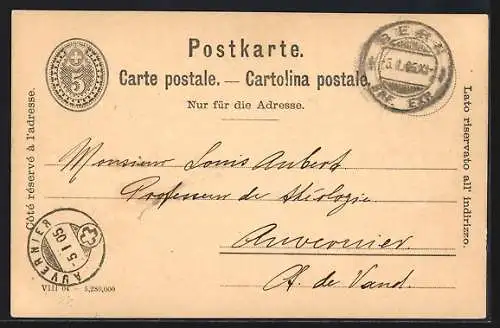 Postkarte.
Carte postale. — Cartolina postale.
Nur für die Adresse.
5
BERN
-5.I.05.XI-
BRF. EXP.
Côté réservé à l'adresse.
Lato riservato all' indirizzo.
Monsieur Louis Aubert
Professeur de théologie
Auvernier
Ct. de Vaud.
AUVERNIER
-5 I 05
VIII 04 — 5,280,000